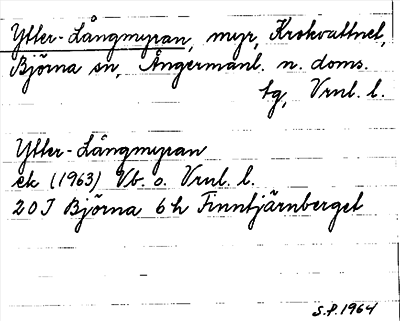 Ytter-Långmyran, myr, Krokvattnet,
Björna sn, Ångermanl. n. doms.
tg, Vrnl. l.
Ytter-Långmyran
ek (1963) Vb. o. Vrnl. l.
20J Björna 6h Finntjärnberget
S.P. 1964